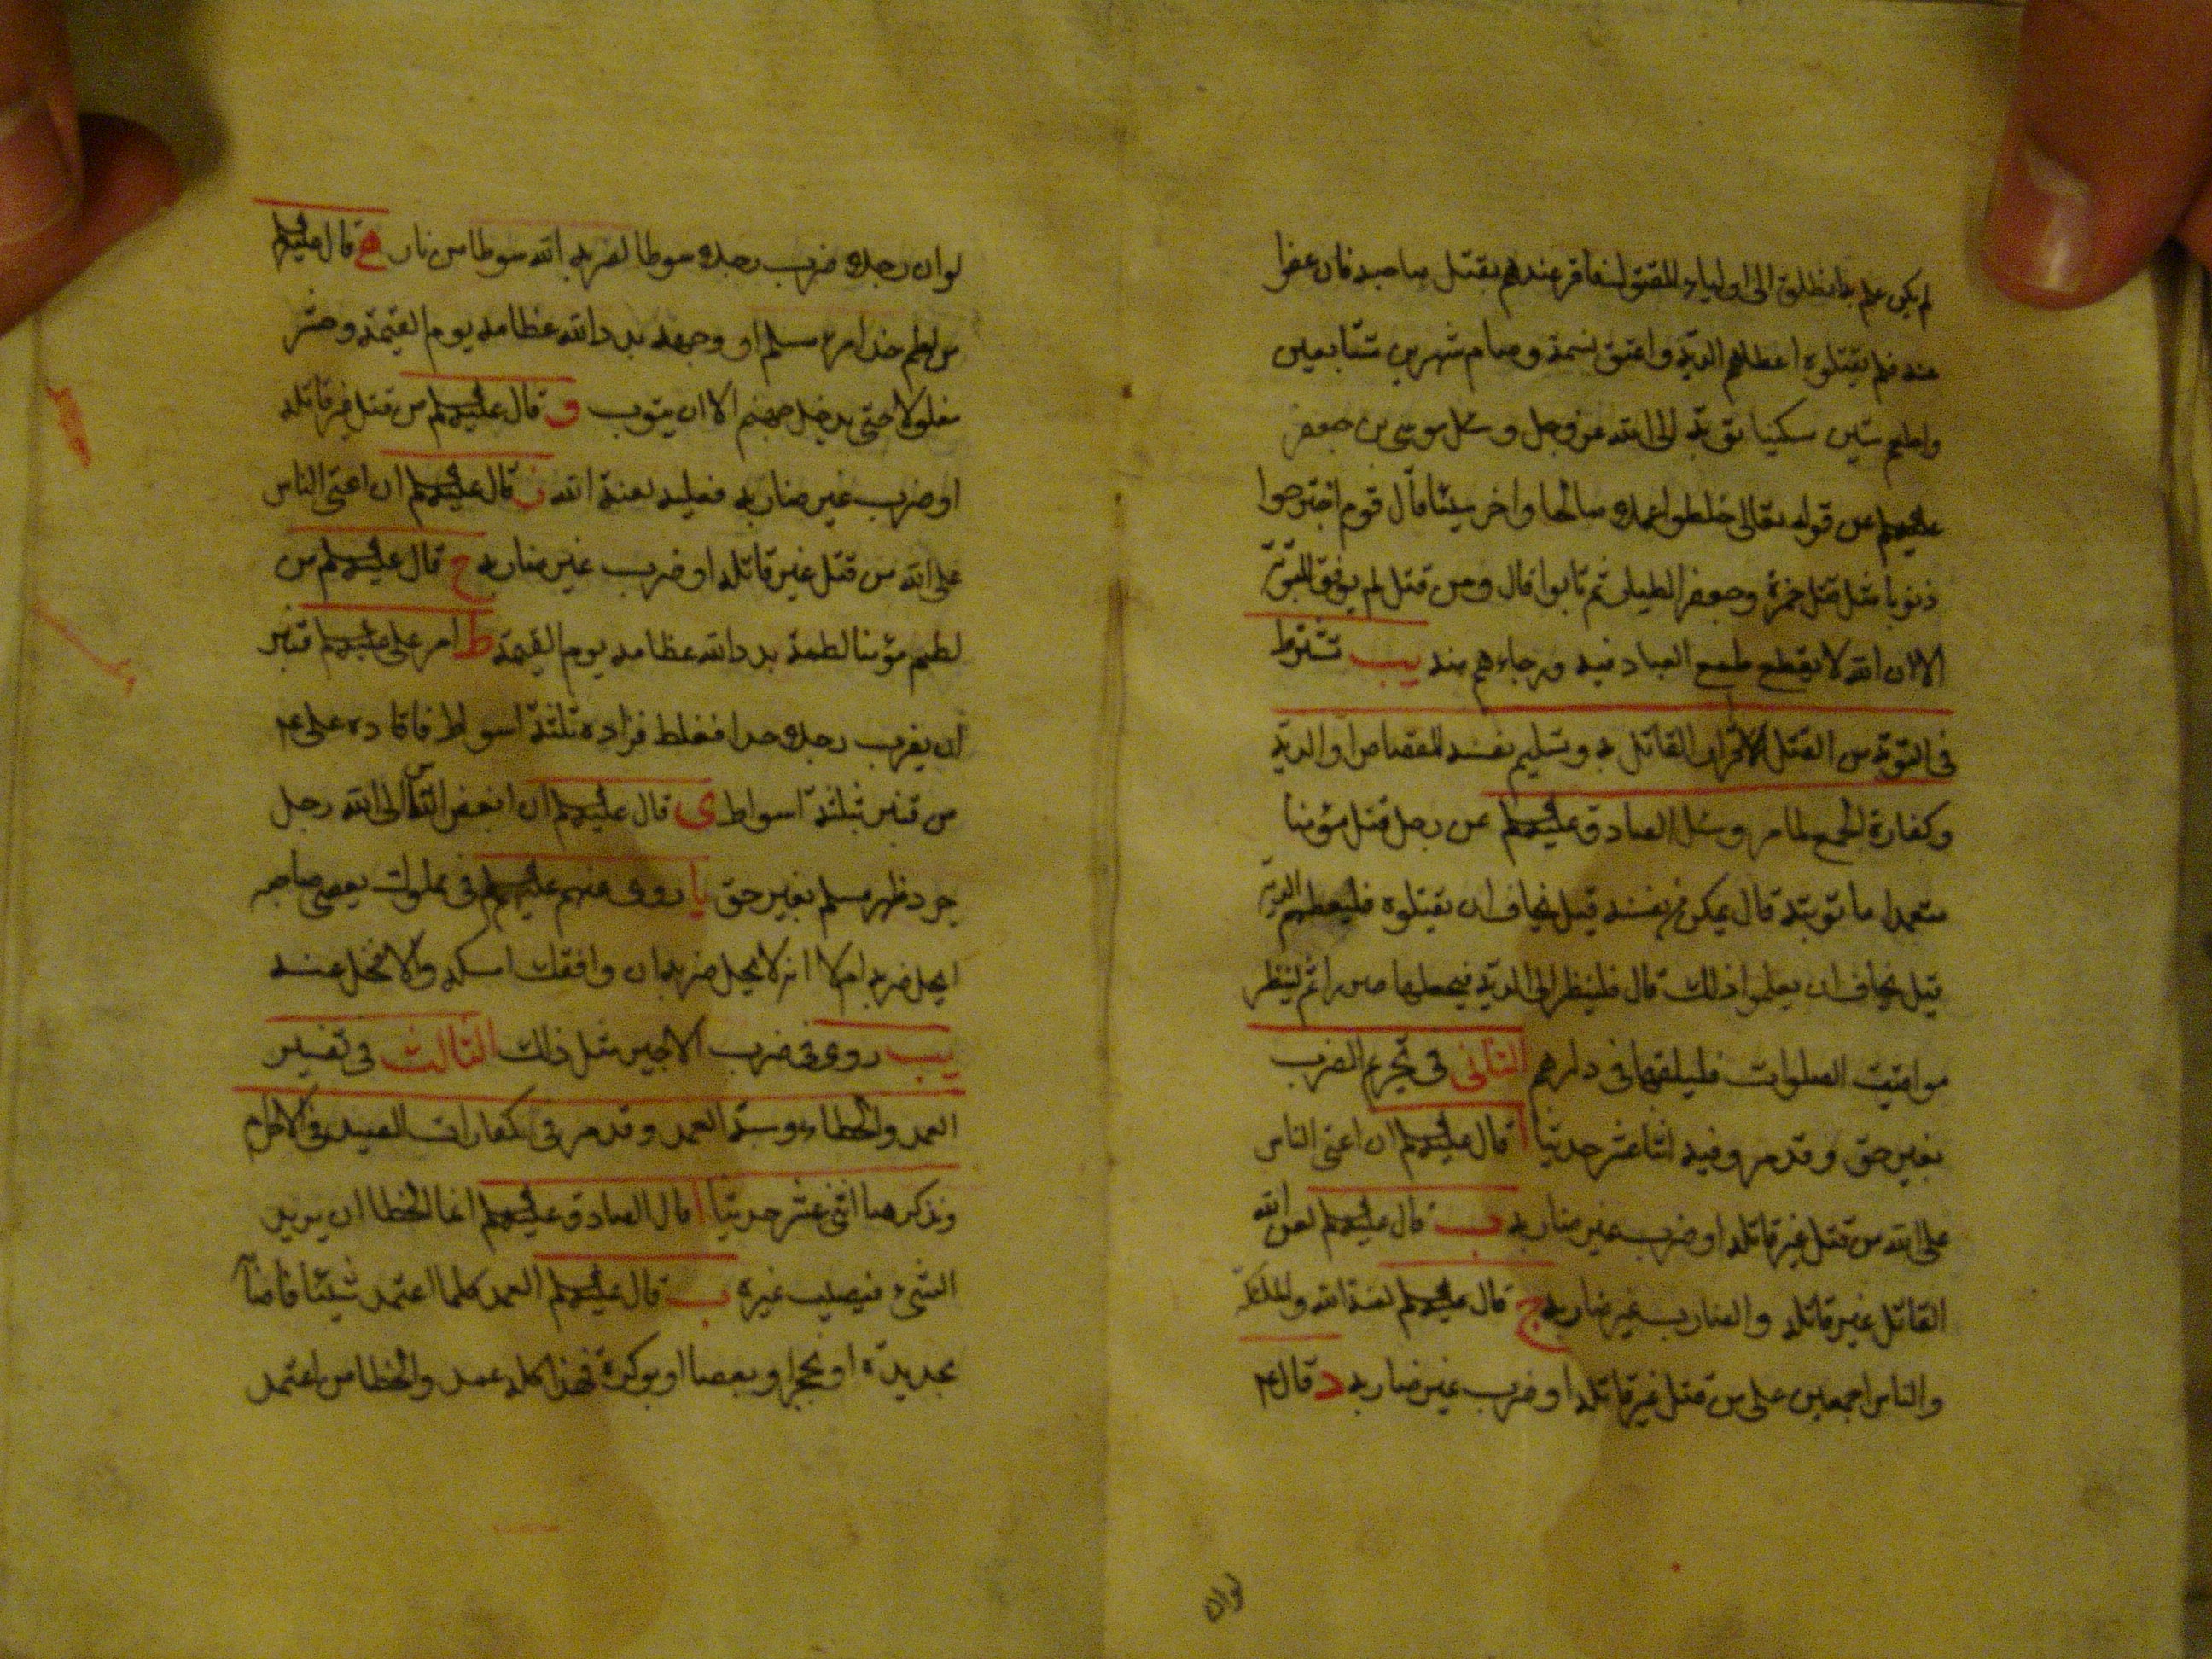 لم يكن علم به انطلق الى اولياء المقتول فاقر عندهم بقتل صاحبه فان عفوا
عنه فلم يقتلوه اعطاهم الدية واعتق نسمة وصام شهرين متتابعين
واطعم ستين مسكينا توبة الى الله عز وجل وسئل موسى بن جعفر
عليهم عن قوله تعالى خلطوا عملا صالحا واخر سيئا قال قوم اجترحوا
ذنوبا مثل قتل حمزة وجعفر الطيار ثم تابوا قال ومن قتل لم يوفق للتوبة
الا ان الله لا يقطع طمع العباد فيه ورجاءهم منه يب تشترط
فى التوبة من القتل اقرار القاتل به وتسليم نفسه للقصاص او الدية
وكفارة الجمع لما مر وسئل الصادق عليهم عن رجل قتل مؤمنا
متعمدا ما توبته قال يمكن من نفسه قيل يخاف ان يقتلوه فليعطهم الدية
قيل يخاف ان يعلموا ذلك قال فلينظر الى الدية فيجعلها صررا ثم لينظر
مواقيت الصلوات فليلقها فى دارهم الثانى فى تحريم الضرب
بغير حق وقد مر وفيه اثنا عشر حديثا ا قال عليهم ان اعتى الناس
على الله من قتل غير قاتله او ضرب غير ضاربه ب قال عليهم لعن الله
القاتل غير قاتله والضارب غير ضاربه ج قال عليهم لعنة الله والملئكة
والناس اجمعين على من قتل غير قاتله او ضرب غير ضاربه د قال عم
لو ان
لو ان رجلا ضرب رجلا سوطا لضربه الله سوطا من نار ه قال عليهم
من لطم خد امرء مسلم او وجهه بدد الله عظامه يوم القيمة وحشر
مغلولا حتى يدخل جهنم الا ان يتوب و قال عليهم من قتل غير قاتله
او ضرب غير ضاربه فعليه لعنة الله ز قال عليهم ان اعتى الناس
على الله من قتل غير قاتله او ضرب غير ضاربه ح قال عليهم من
لطم مؤمنا لطمة بدد الله عظامه يوم القيمة ط امر على عليهم قنبر
ان يضرب رجلا حدا فغلط فزاده ثلثة اسواط فاقاده على عم
من قنبر بثلثة اسواط ى قال عليهم ان ابغض الناس الى الله رجل
جرد ظهر مسلم بغير حق يا روى عنهم عليهم فى مملوك يعصى صاحبه
ايحل ضربه ام لا لا يحل ضربه ان وافقك امسكه والا فخل عنه
يب روى فى ضرب الاجير مثل ذلك الثالث فى تفسير
العمد والخطاء وشبه العمد وقد مر فى كفارات الصيد فى الاحرام
ونذكر هنا اثنى عشر حديثا ا قال الصادق عليهم انما الخطا ان يريد
الشىء فيصيب غيره ب قال عليهم العمد كلما اعتمد شيئا فاصابه
بحديدة او بحجر او بعصا او بوكزة فهذا كله عمد والخطا من اعتمد